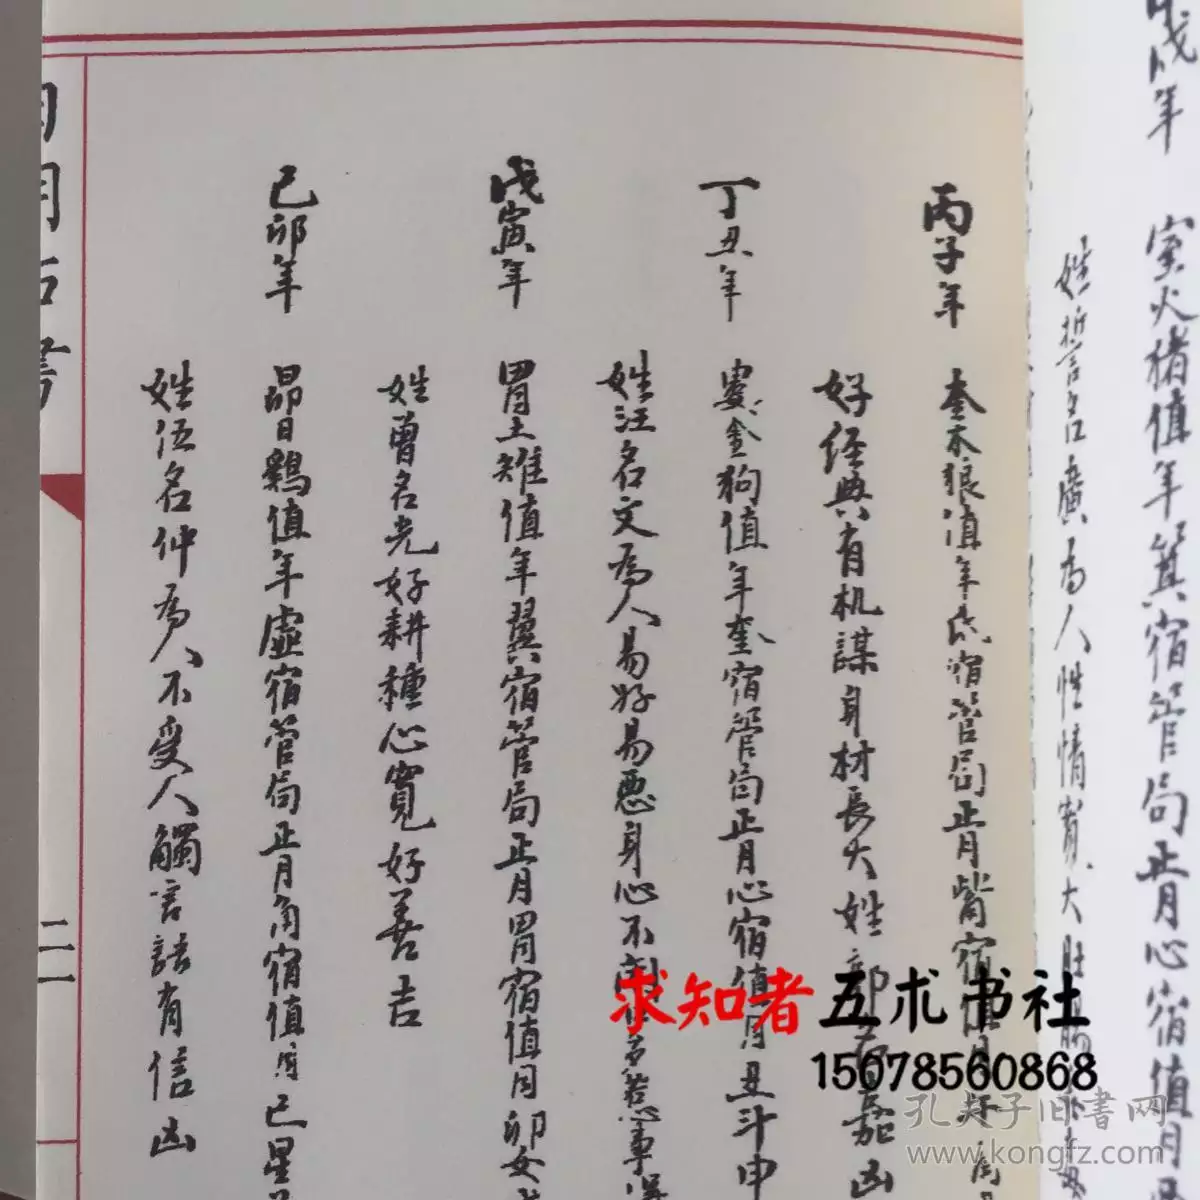 戊年 室火猪值年箕宿管局正月心宿值月
姓哲名廣为人性情寛大
丙子年 奎木狼值年氐宿管局正月觜宿值月
好经典有机謀身材長大姓郭名嘉凶
丁丑年 婁金狗值年奎宿管局正月心宿值月丑斗申
姓汪名文為人易好易悪身心不閑
戊寅年 胃土雉值年翼宿管局正月胃宿值月卯女
姓曾名光好耕種心寬好善吉
己卯年 昴日鷄值年虚宿管局正月角宿值月巳星
姓伍名仲為人不受人觸言語有信凶
二一
求知者 五术书社
15678560868
孔夫子旧書网
www.kongfz.com